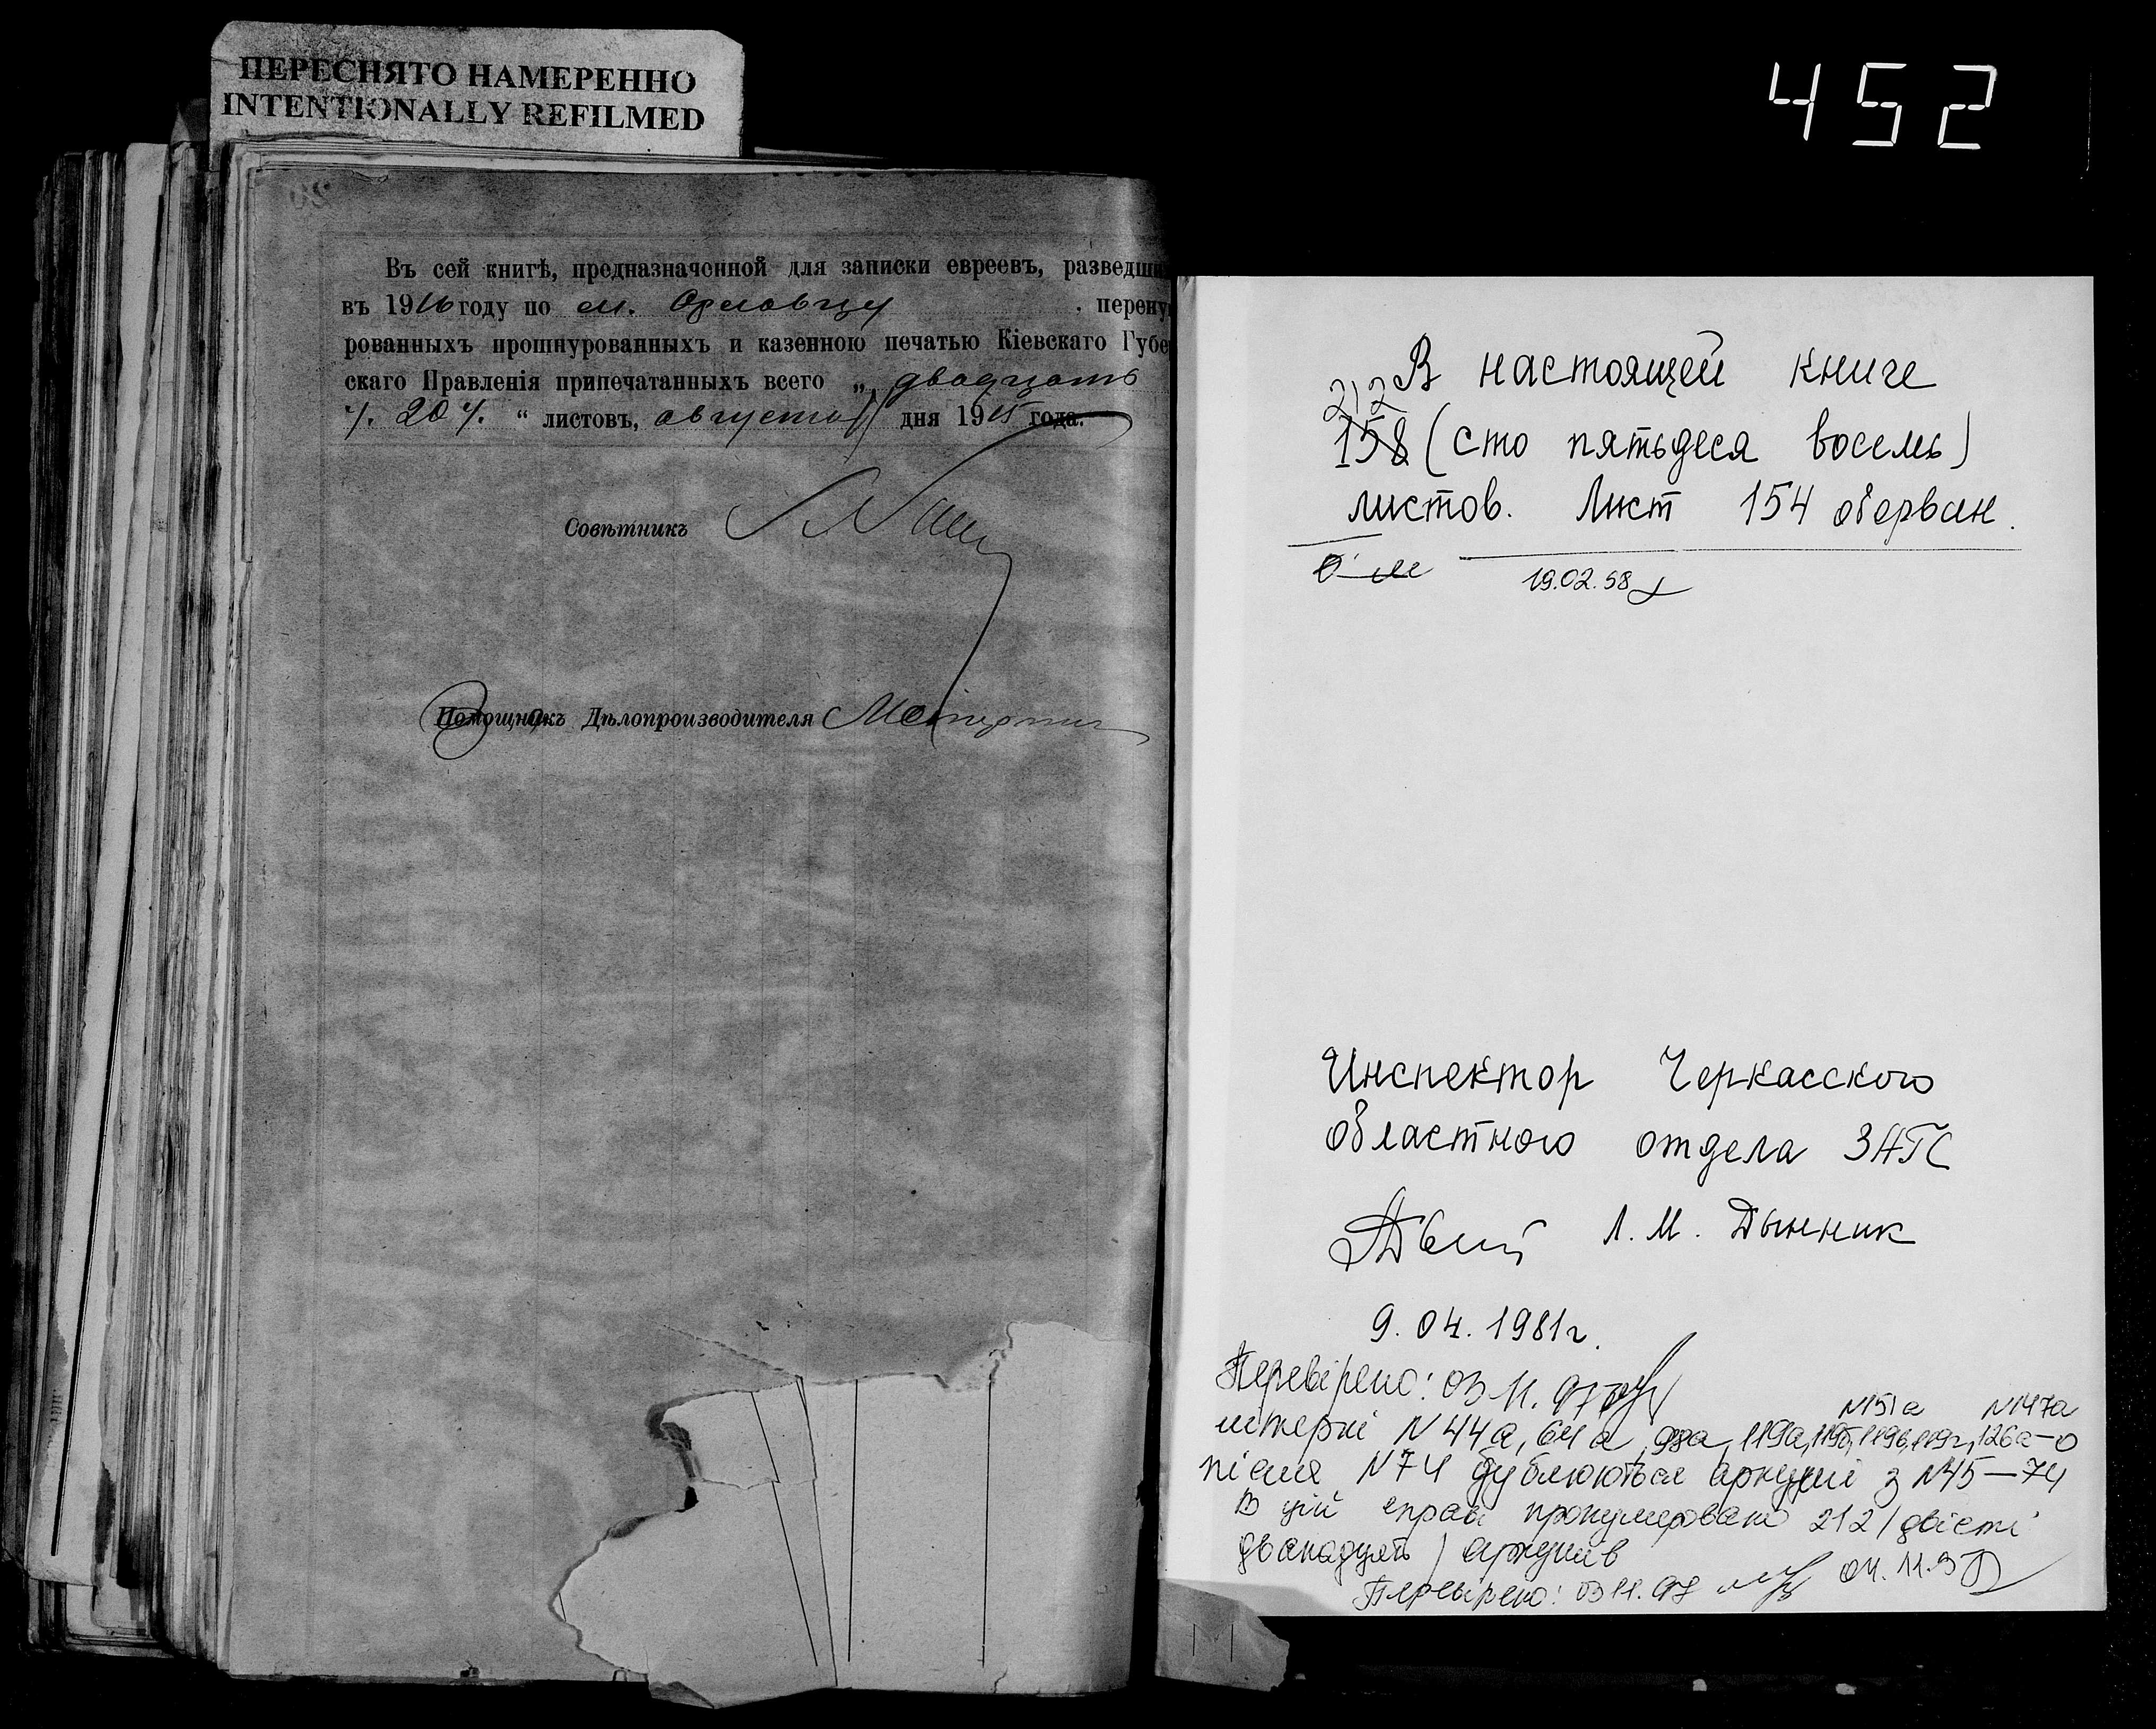 ПЕРЕСНЯТО НАМЕРЕННО
INTENTIONALLY REFILMED
452
Въ сей книгѣ, предназначенной для записки евреевъ, разведши
въ 1916 году по м. Орловцу . перену
рованныхъ прошнурованныхъ и казенною печатью Кіевскаго Губе
скаго Правленія припечатанныхъ всего „ двадцать
20 “ листовъ, августа дня 1915 года.
Совѣтникъ
Помощникъ Дѣлопроизводителя
212 В настоящей книге
158 (сто пятьдеся восемь)
листов. Лист 154 оборван.
19.02.98
Инспектор Черкасского
областного отдела ЗАГС
Л. М. Дынник
9. 04. 1981г.
Перевірено: 03 11. 97
N151а N147а
літерні N 44а, 64а, 98а, 119а, 119б, 119в, 119г, 126а-о
після N74 дублюються аркуші з N45-74
В цій справі пронумеровано 212 /двісті
дванадцять / аркушів
Перевірено: 03 11. 97 04. 11. 97